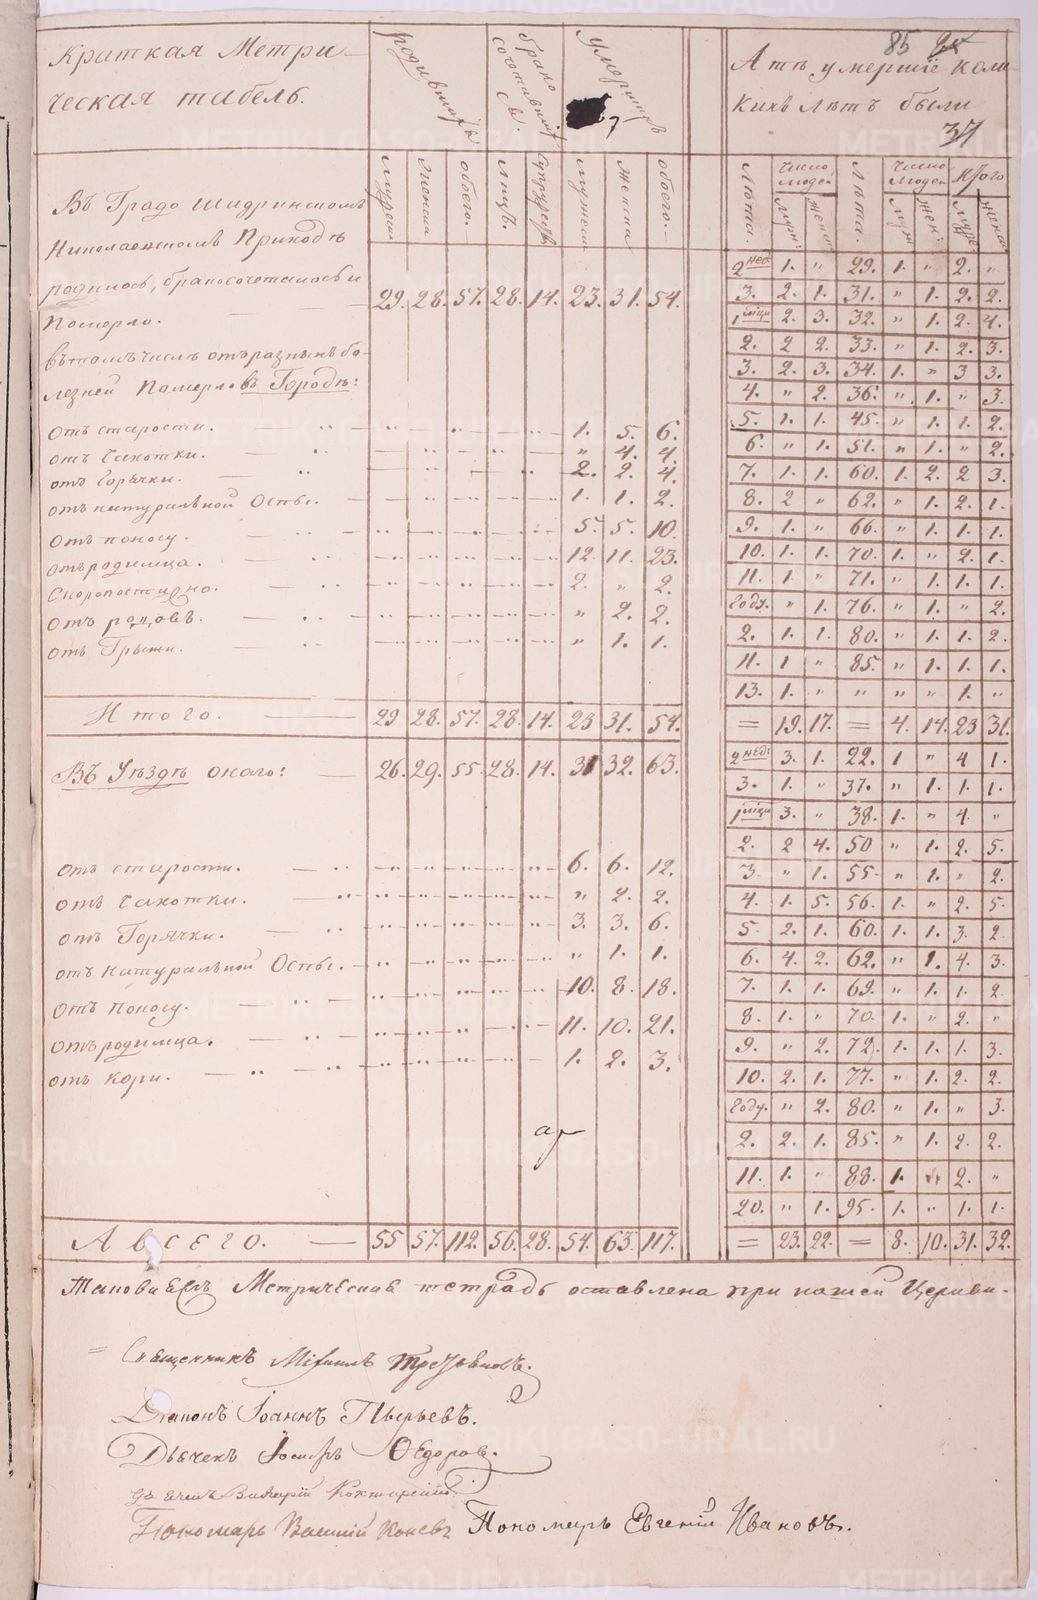 85
Краткая Метри-
ческая табель.
родившихъ
брако
сочетавших
ся.
умершихъ
А тѣ умершіе коли-
кихъ лѣтъ были
37
мужеск
женска
обоего.
лицъ.
супружеств
мужеска
женска
обоего.
Лѣта.
Число людей
муж:
женс
Лѣта.
Число людей
муж
жен:
Итого
муже
женска
Въ Градо Шадринскомъ
Николаевскомъ Приходѣ
родилось, бракосочеталось и
померло.
29. 28. 57. 28. 14. 23. 31. 54.
въ томъ числѣ отъ разныхъ бо-
лезней Померло въ Городѣ:
отъ старости. 1. 5. 6.
отъ Чахотки. " 4. 4.
отъ Горячки. 2. 2. 4.
отъ натуральной Оспы. 1. 1. 2.
отъ поносу. 5. 5. 10.
отъ родимца. 12. 11. 23.
Скоропостижно. 2. " 2.
отъ родовъ. " 2. 2.
отъ Грыжи. " 1. 1.
Итого. 29 28. 57. 28. 14. 23 31. 54.
Въ Уѣздѣ онаго: 26. 29. 55. 28. 14. 31 32. 63.
отъ старости. 6. 6. 12.
отъ Чахотки. " 2. 2.
отъ Горячки. 3. 3. 6.
отъ натуральной Оспы. " 1. 1.
отъ поносу. 10. 8. 18.
отъ родимца. 11. 10. 21.
отъ кори. 1. 2. 3.
А всего. 55 57. 112. 56. 28. 54. 63. 117.
2 нед: 1. " 29. 1. " 2. "
3. 2. 1. 31. " 1. 2. 2.
1 мѣця 2. 3. 32. " 1. 2. 4.
2. 2 2. 33. " 1. 2. 3.
3. 2. 3. 34. 1. " 3 3.
4. " 2. 36. " 1. " 3.
5. 1. 1. 45. " 1. 1. 2.
6. " 1. 51. " 1. " 2.
7. 1. 1. 60. 1. 2. 2 3.
8. 2 " 62. " 1. 2. 1.
9. 1. " 66. " 1. 1. 1.
10. 1. 1. 70. 1. " 2. 1.
11. 1. " 71. " 1. 1. 1.
Году. " 1. 76. " 1. " 2.
2. 1. 1. 80. " 1. 1. 2.
11. 1 " 85. " 1. 1. 1.
13. 1. " " " " 1. "
= 19. 17. = 4. 14. 23 31.
2 нед: 3. 1. 22. 1 " 4 1.
3. 1. " 37. " 1. 1. 1.
1 мѣця 3. " 38. 1. " 4. "
2. 2 4. 50 " 1. 2. 5.
3. " 1. 55. " 1. " 2.
4. 1. 5. 56. 1. " 2. 5.
5. 2. 1. 60. 1. 1. 3. 2
6. 4. 2. 62. " 1. 4. 3.
7. 1. 1. 69. " 1. 1. 2
8. 1. " 70. 1. " 2. "
9. " 2. 72. 1. 1. 1. 3.
10. 2. 1. 77. " 1. 2. 2.
Году. " 2. 80. " 1. " 3.
2. 2. 1. 85. " 1. 2. 2.
11. 1. " 88. 1. 2. "
20. " 1. 95. 1. " 1. 1.
= 23. 22. = 8. 10. 31. 32.
Метрическая тетрадь оставлена при нашей Церкви.
Священникъ Михаилъ
Діаконъ Іоаннъ
Дьячекъ Іосифъ Ѳедоров.
Пономарь Василій
Пономарь Евгеній Ивановъ.
METRIKI.GASO-URAL.RU